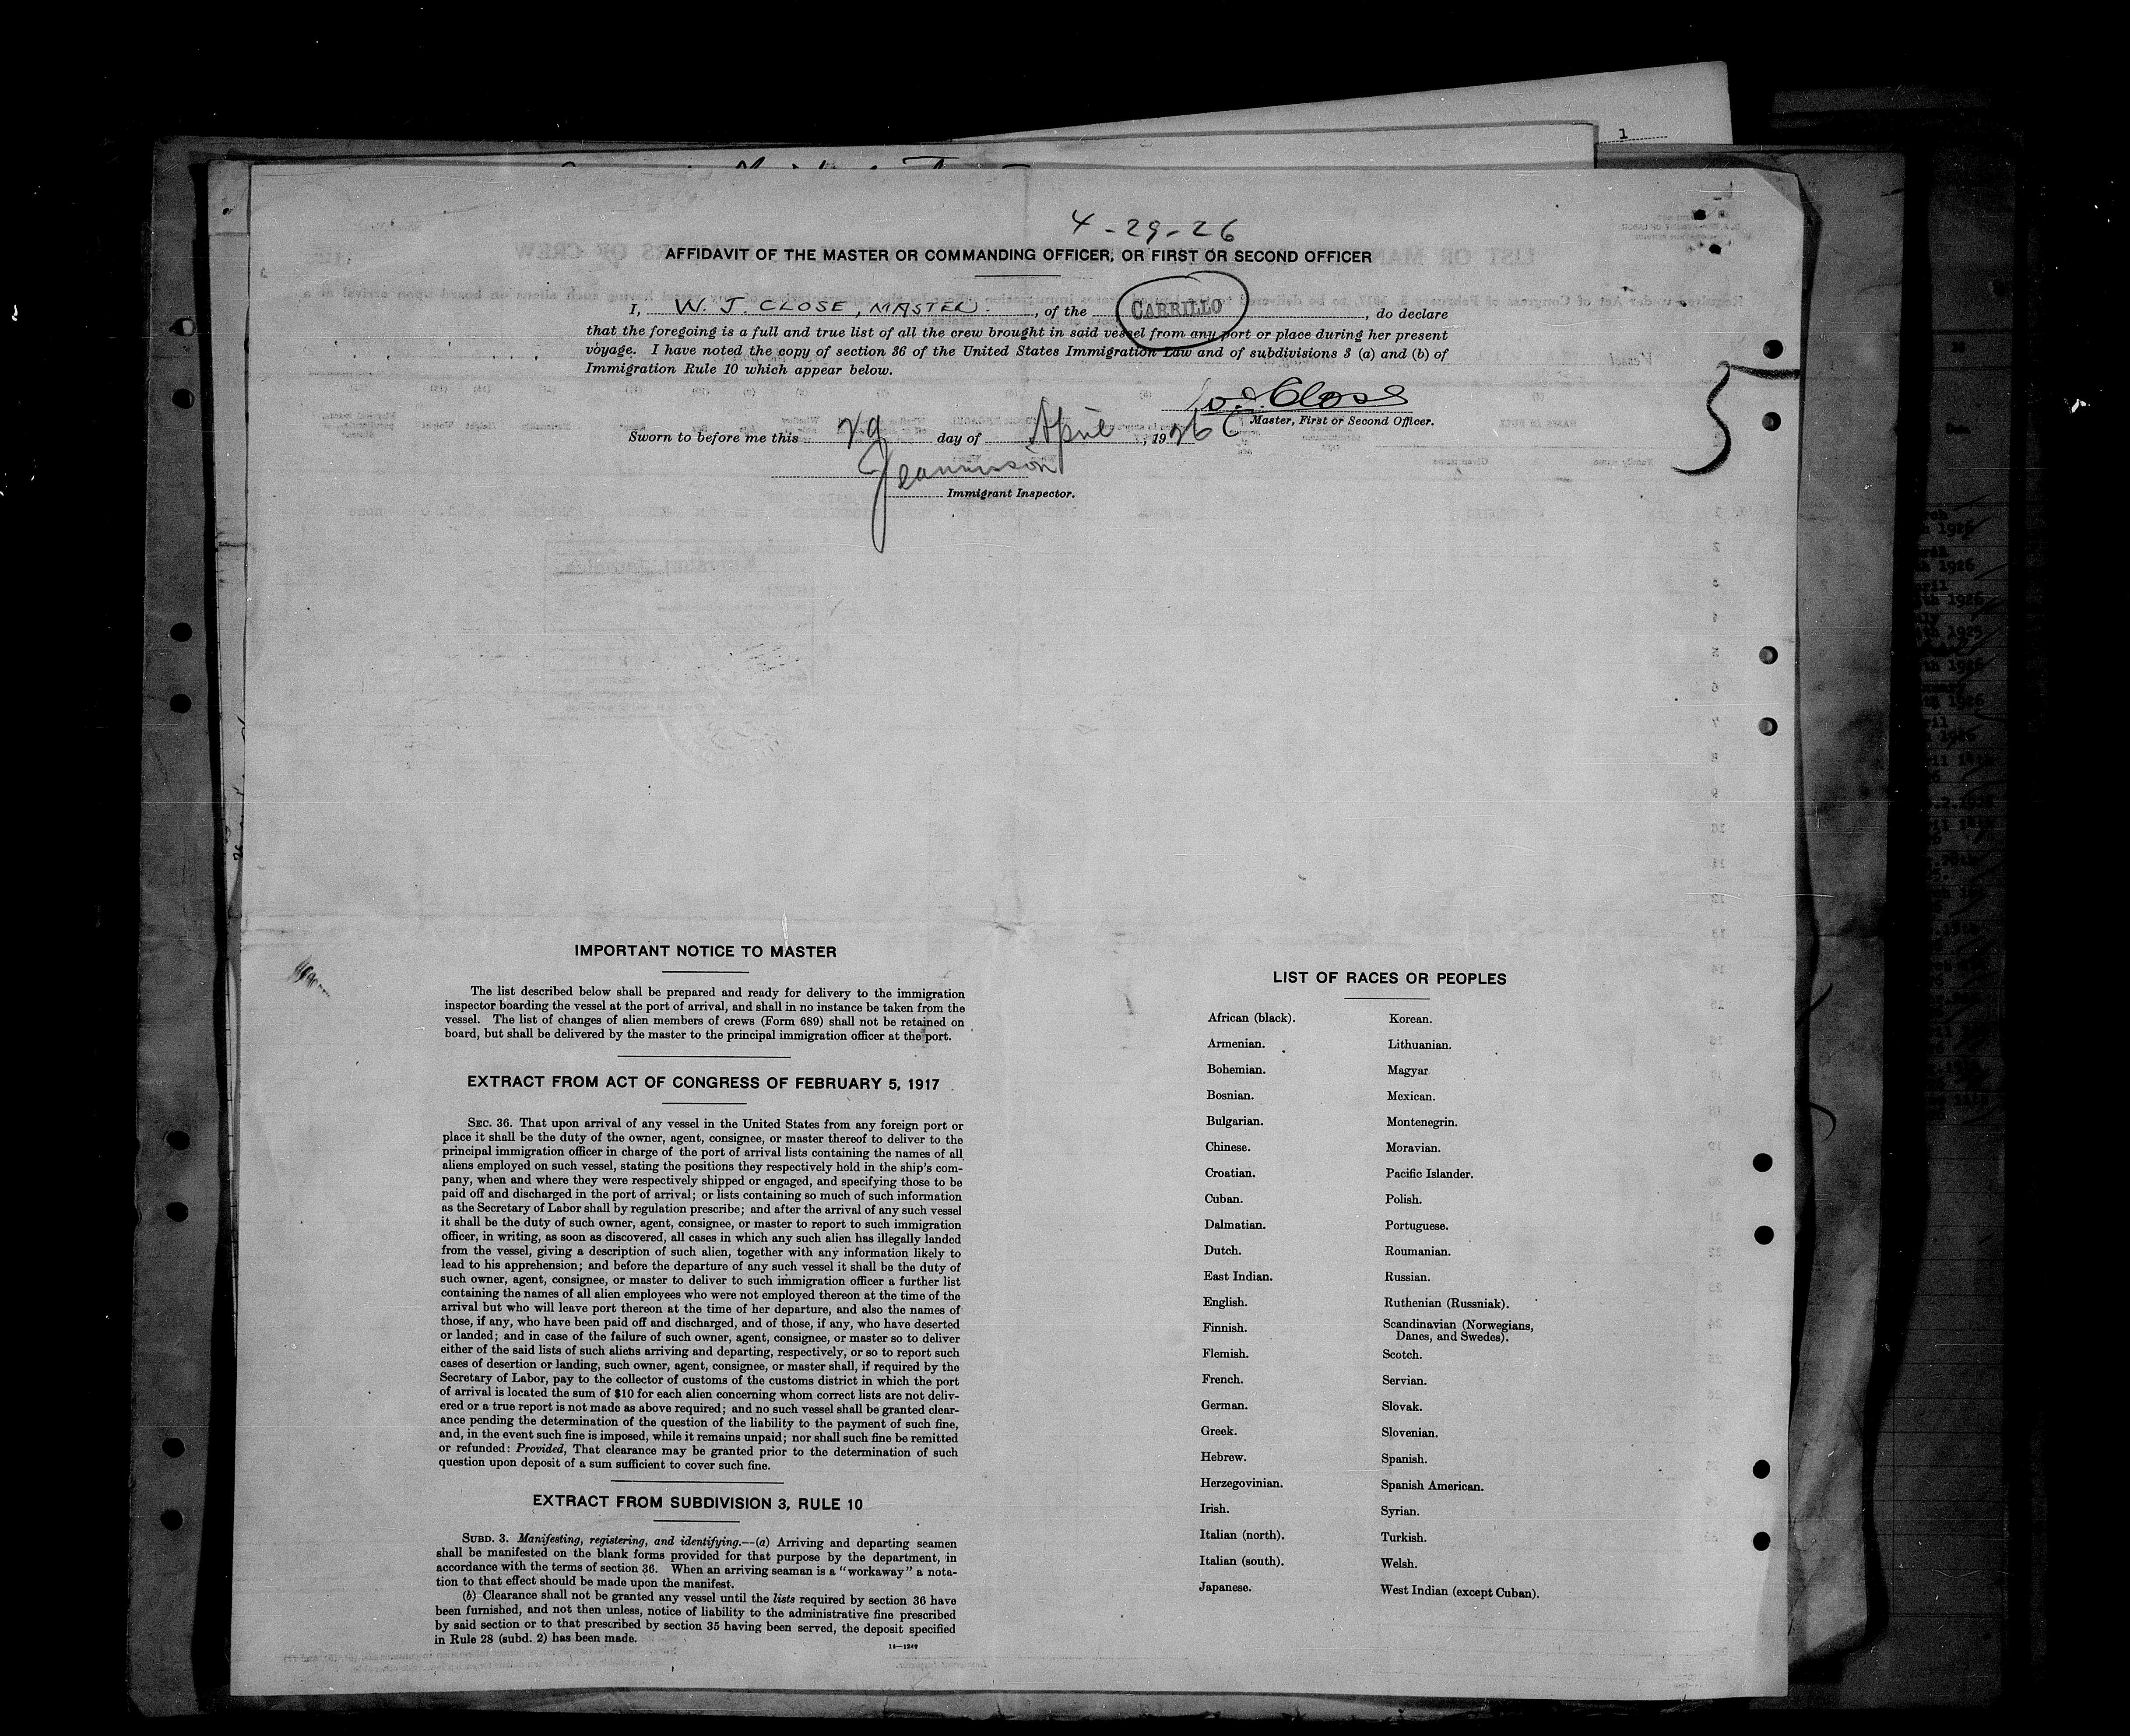 1
4-29-26
AFFIDAVIT OF THE MASTER OR COMMANDING OFFICER, OR FIRST OR SECOND OFFICER
I, W. J. CLOSE, MASTER. , of the CARRILLO , do declare
that the foregoing is a full and true list of all the crew brought in said vessel from any port or place during her present
voyage. I have noted the copy of section 36 of the United States Immigration Law and of subdivisions 3 (a) and (b) of
Immigration Rule 10 which appear below.
5
W. J. Close
Master, First or Second Officer.
Sworn to before me this 29 day of April , 1926
Immigrant Inspector.
IMPORTANT NOTICE TO MASTER
The list described below shall be prepared and ready for delivery to the immigration
inspector boarding the vessel at the port of arrival, and shall in no instance be taken from the
vessel. The list of changes of alien members of crews (Form 689) shall not be retained on
board, but shall be delivered by the master to the principal immigration officer at the port.
EXTRACT FROM ACT OF CONGRESS OF FEBRUARY 5, 1917
SEC. 36. That upon arrival of any vessel in the United States from any foreign port or
place it shall be the duty of the owner, agent, consignee, or master thereof to deliver to the
principal immigration officer in charge of the port of arrival lists containing the names of all
aliens employed on such vessel, stating the positions they respectively hold in the ship's com-
pany, when and where they were respectively shipped or engaged, and specifying those to be
paid off and discharged in the port of arrival; or lists containing so much of such information
as the Secretary of Labor shall by regulation prescribe; and after the arrival of any such vessel
it shall be the duty of such owner, agent, consignee, or master to report to such immigration
officer, in writing, as soon as discovered, all cases in which any such alien has illegally landed
from the vessel, giving a description of such alien, together with any information likely to
lead to his apprehension; and before the departure of any such vessel it shall be the duty of
such owner, agent, consignee, or master to deliver to such immigration officer a further list
containing the names of all alien employees who were not employed thereon at the time of the
arrival but who will leave port thereon at the time of her departure, and also the names of
those, if any, who have been paid off and discharged, and of those, if any, who have deserted
or landed; and in case of the failure of such owner, agent, consignee, or master so to deliver
either of the said lists of such aliens arriving and departing, respectively, or so to report such
cases of desertion or landing, such owner, agent, consignee, or master shall, if required by the
Secretary of Labor, pay to the collector of customs of the customs district in which the port
of arrival is located the sum of $10 for each alien concerning whom correct lists are not deliv-
ered or a true report is not made as above required; and no such vessel shall be granted clear-
ance pending the determination of the question of the liability to the payment of such fine,
and, in the event such fine is imposed, while it remains unpaid; nor shall such fine be remitted
or refunded: Provided, That clearance may be granted prior to the determination of such
question upon deposit of a sum sufficient to cover such fine.
EXTRACT FROM SUBDIVISION 3, RULE 10
SUBD. 3. Manifesting, registering, and identifying.—(a) Arriving and departing seamen
shall be manifested on the blank forms provided for that purpose by the department, in
accordance with the terms of section 36. When an arriving seaman is a "workaway" a nota-
tion to that effect should be made upon the manifest.
(b) Clearance shall not be granted any vessel until the lists required by section 36 have
been furnished, and not then unless, notice of liability to the administrative fine prescribed
by said section or to that prescribed by section 35 having been served, the deposit specified
in Rule 28 (subd. 2) has been made.
LIST OF RACES OR PEOPLES
African (black).
Armenian.
Bohemian.
Bosnian.
Bulgarian.
Chinese.
Croatian.
Cuban.
Dalmatian.
Dutch.
East Indian.
English.
Finnish.
Flemish.
French.
German.
Greek.
Hebrew.
Herzegovinian.
Irish.
Italian (north).
Italian (south).
Japanese.
Korean.
Lithuanian.
Magyar
Mexican.
Montenegrin.
Moravian.
Pacific Islander.
Polish.
Portuguese.
Roumanian.
Russian.
Ruthenian (Russniak).
Scandinavian (Norwegians,
Danes, and Swedes).
Scotch.
Servian.
Slovak.
Slovenian.
Spanish.
Spanish American.
Syrian.
Turkish.
Welsh.
West Indian (except Cuban).